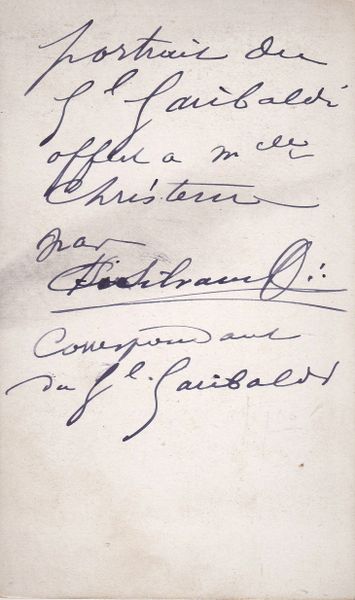 portrait du
Gl Garibaldi
offert a mde
Christenn
par
Correspondant
du Gl. Garibaldi